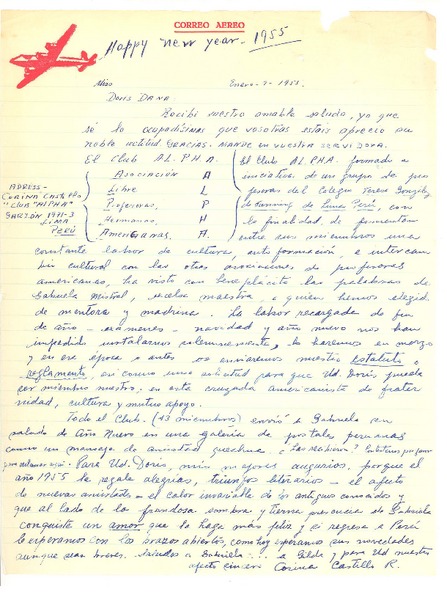 CORREO AEREO
Happy new year - 1955
Miss Enero-2-1955.
Doris Dana
Recibí vuestro amable saludo, ya que
sé lo ocupadísimas que vosotras estáis aprecio su
noble actitud. GRACIAS. MANDE EN VUESTRA SERVIDORA.
El Club AL.P.H.A.
Asociación A
Libre L
Profesoras, P
Hermanas, H
Americanas. A.
El Club AL.P.H.A. formado a
iniciativa de un grupo de pro
fesoras del Colegio Teresa González
de Fanning de Lima Perú, con
la finalidad de fomentar
entre sus miembros una
ADRESS -
CORINA CASTILLO
"CLUB "ALPHA"
GARZÓN 1971-3
LIMA
PERÚ
constante labor de cultura, auto formación, e intercam
bio cultural con las otras asociaciones de profesores
americanas, ha visto con beneplácito las palabras de
Gabriela Mistral, excelsa maestra, a quien hemos elegido
de mentora y madrina. La labor recargada de fin
de año - exámenes - navidad y año nuevo nos han
impedido instalarnos solemnemente, lo haremos en marzo
y en esa época o antes os enviaremos nuestro Estatuto
y reglamento, así como una solicitud para que Ud. Doris, pueda
ser miembro nuestro. en esta cruzada americanista de frater
nidad, cultura y mutuo apoyo.
Todo el Club. (43 miembros) envió a Gabriela un
saludo de Año Nuevo en una galería de postales peruanas
como un mensaje de amistad quechua - ¿Las recibieron?
Para Ud. Doris, mis mejores augurios, porque el
año 1955 la regale alegrías, triunfos literarios - el afecto
de nuevas amistades - el calor invariable de los antiguos conocidos y
que al lado de la frondosa sombra y tierna presencia de Gabriela
conquiste un amor que la haga más feliz, y si regresa a Perú
le esperamos con los brazos abiertos, como hoy esperamos sus novedades
aunque sean breves. Saludos a Gabriela... a Gilda y para Ud. nuestro
afecto sincero Corina Castillo R.